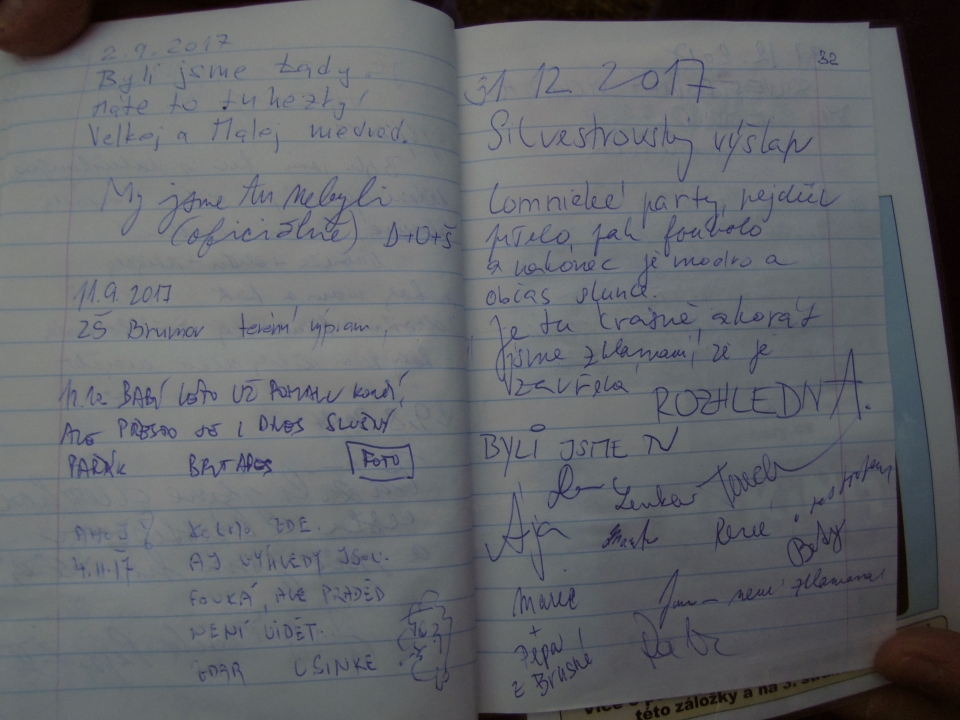 2.9.2017
Byli jsme tady.
máte to tu hezký!
Velkej a Malej medvěd.
My jsme tu nebyli
(oficiálně) D+O+Š
11.9.2017
ZŠ Brumov terénní výprava
BABÍ LÉTO UŽ POMALU KONČÍ,
ALE PŘESTO JE I DNES SLUŠNÝ
PAŘÁK FOTO
ZDE.
4.11.17 AJ VÝHLEDY JSOU.
FOUKÁ, ALE PRADĚD
NENÍ VIDĚT.
ZDAR
32
31.12.2017
Silvestrovský výšlap
Lomnické party, nejdřív
pršelo, pak foukalo
a nakonec je modro a
občas slunce.
Je tu krásně, akorát
jsme zklamaní, že je
zavřela ROZHLEDNA.
BYLI JSME TU
Lenka
Ája René
Betty
není zklamaná
+
Pepa
z Brusné
této záložky a na 3.